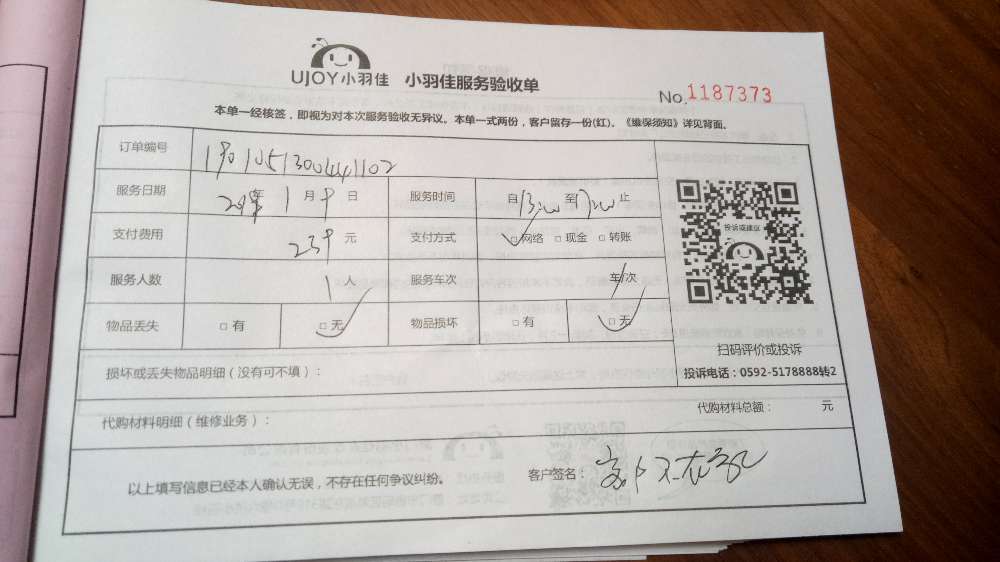 UJOY小羽佳 小羽佳服务验收单
No.1187373
本单一经核签，即视为对本次服务验收无异议。本单一式两份，客户留存一份(红)、《维保须知》详见背面。
订单编号
服务日期 年 1 月 9 日 服务时间 自 至 止
支付费用 239 元 支付方式 □网络 □现金 □转账
服务人数 1 人 服务车次 车/次
物品丢失 □有 □无 物品损坏 □有 □无
投诉或建议
扫码评价或投诉
投诉电话：0592-5178888转2
损坏或丢失物品明细（没有可不填）：
代购材料明细（维修业务）： 代购材料总额： 元
以上填写信息已经本人确认无误，不存在任何争议纠纷。 客户签名：客户不在家